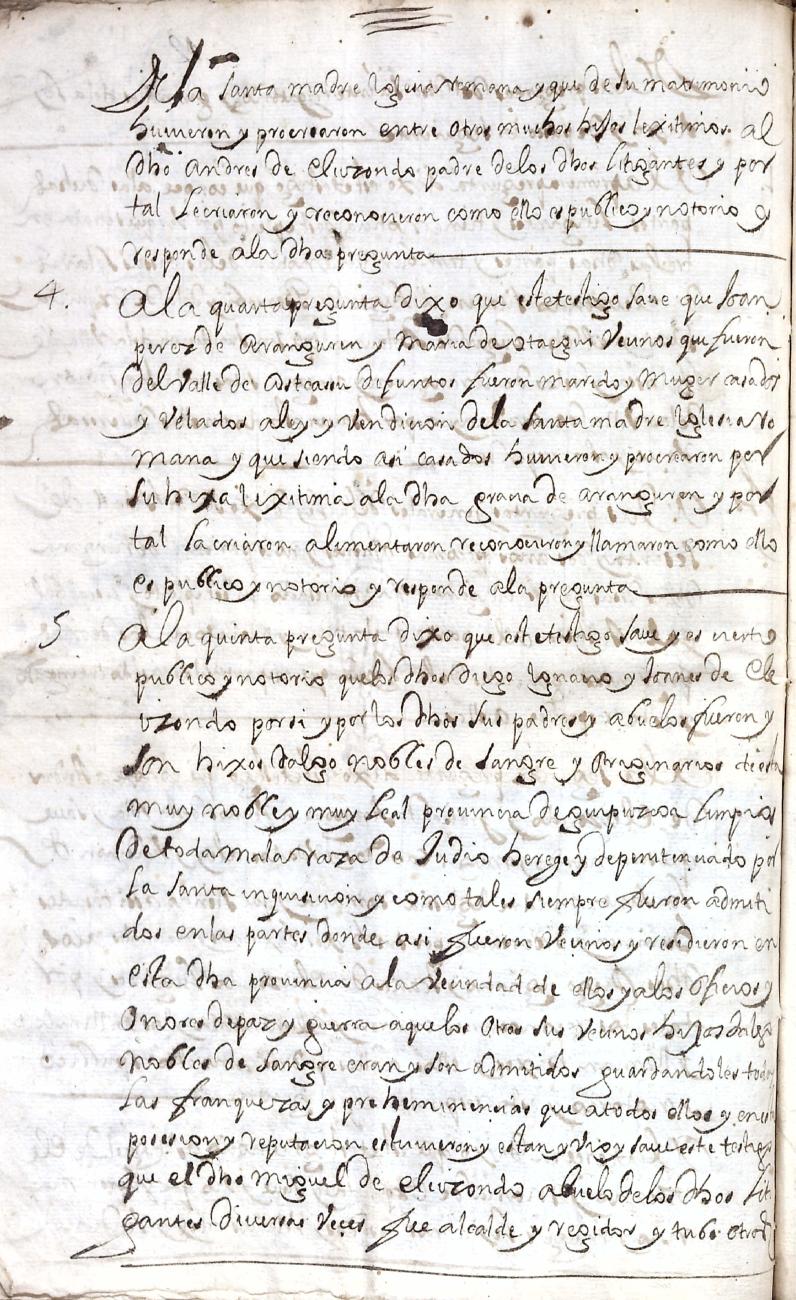 De la santa madre iglesia rromana y que de su matrimonio
huuieron y procrearon entre otros muchos hijos lexitimos al
dho andres de eliçondo padre delos dhos litigantes y por
tal le criaron y rreconocieron como ello es publico y notorio y
responde ala dha pregunta
4. Ala quarta pregunta dixo que este testigo saue que Joan
perez de aranguren y Maria de otaegui Vecinos que fueron
del Valle de asteasu difuntos fueron marido y Muger casados
y Velados a ley y Vendicion dela santa madre iglesia rro
mana y que siendo asi casados huuieron y procrearon por
su hixa lexitima ala dha gracia de aranguren y por
tal la criaron alimentaron rreconocieron y llamaron como ello
es publico y notorio y responde ala pregunta
5 Ala quinta pregunta dixo que este testigo saue y es cierto
publico y notorio quelos dhos diego ygnacio y Joanes de Ele
izondo por si y por los dhos sus padres y abuelos fueron y
son hixos dalgo nobles de sangre y originarios de esta
muy noble y muy leal provincia de guipuzcoa limpios
de toda mala rraza de Judio herege y depenitenciado por
la santa inquisicion y como tales siempre fueron admiti
dos en las partes donde asi fueron Vecinos y residieron en
esta dha provincia ala Vecindad de ellos y alos oficios y
Onores de paz y guerra aquelos otros sus vecinos hijos dalgo
nobles de sangre eran y son admitidos guardandoles todas
las franquezas y preheminencias que a todos ellos y en esta
posesion y reputacion estuuieron y estan y vio y saue este testigo
que el dho miguel de eliçondo abuelo de los dhos liti
gantes diuersas veçes fue alcalde y regidor y tubo otros